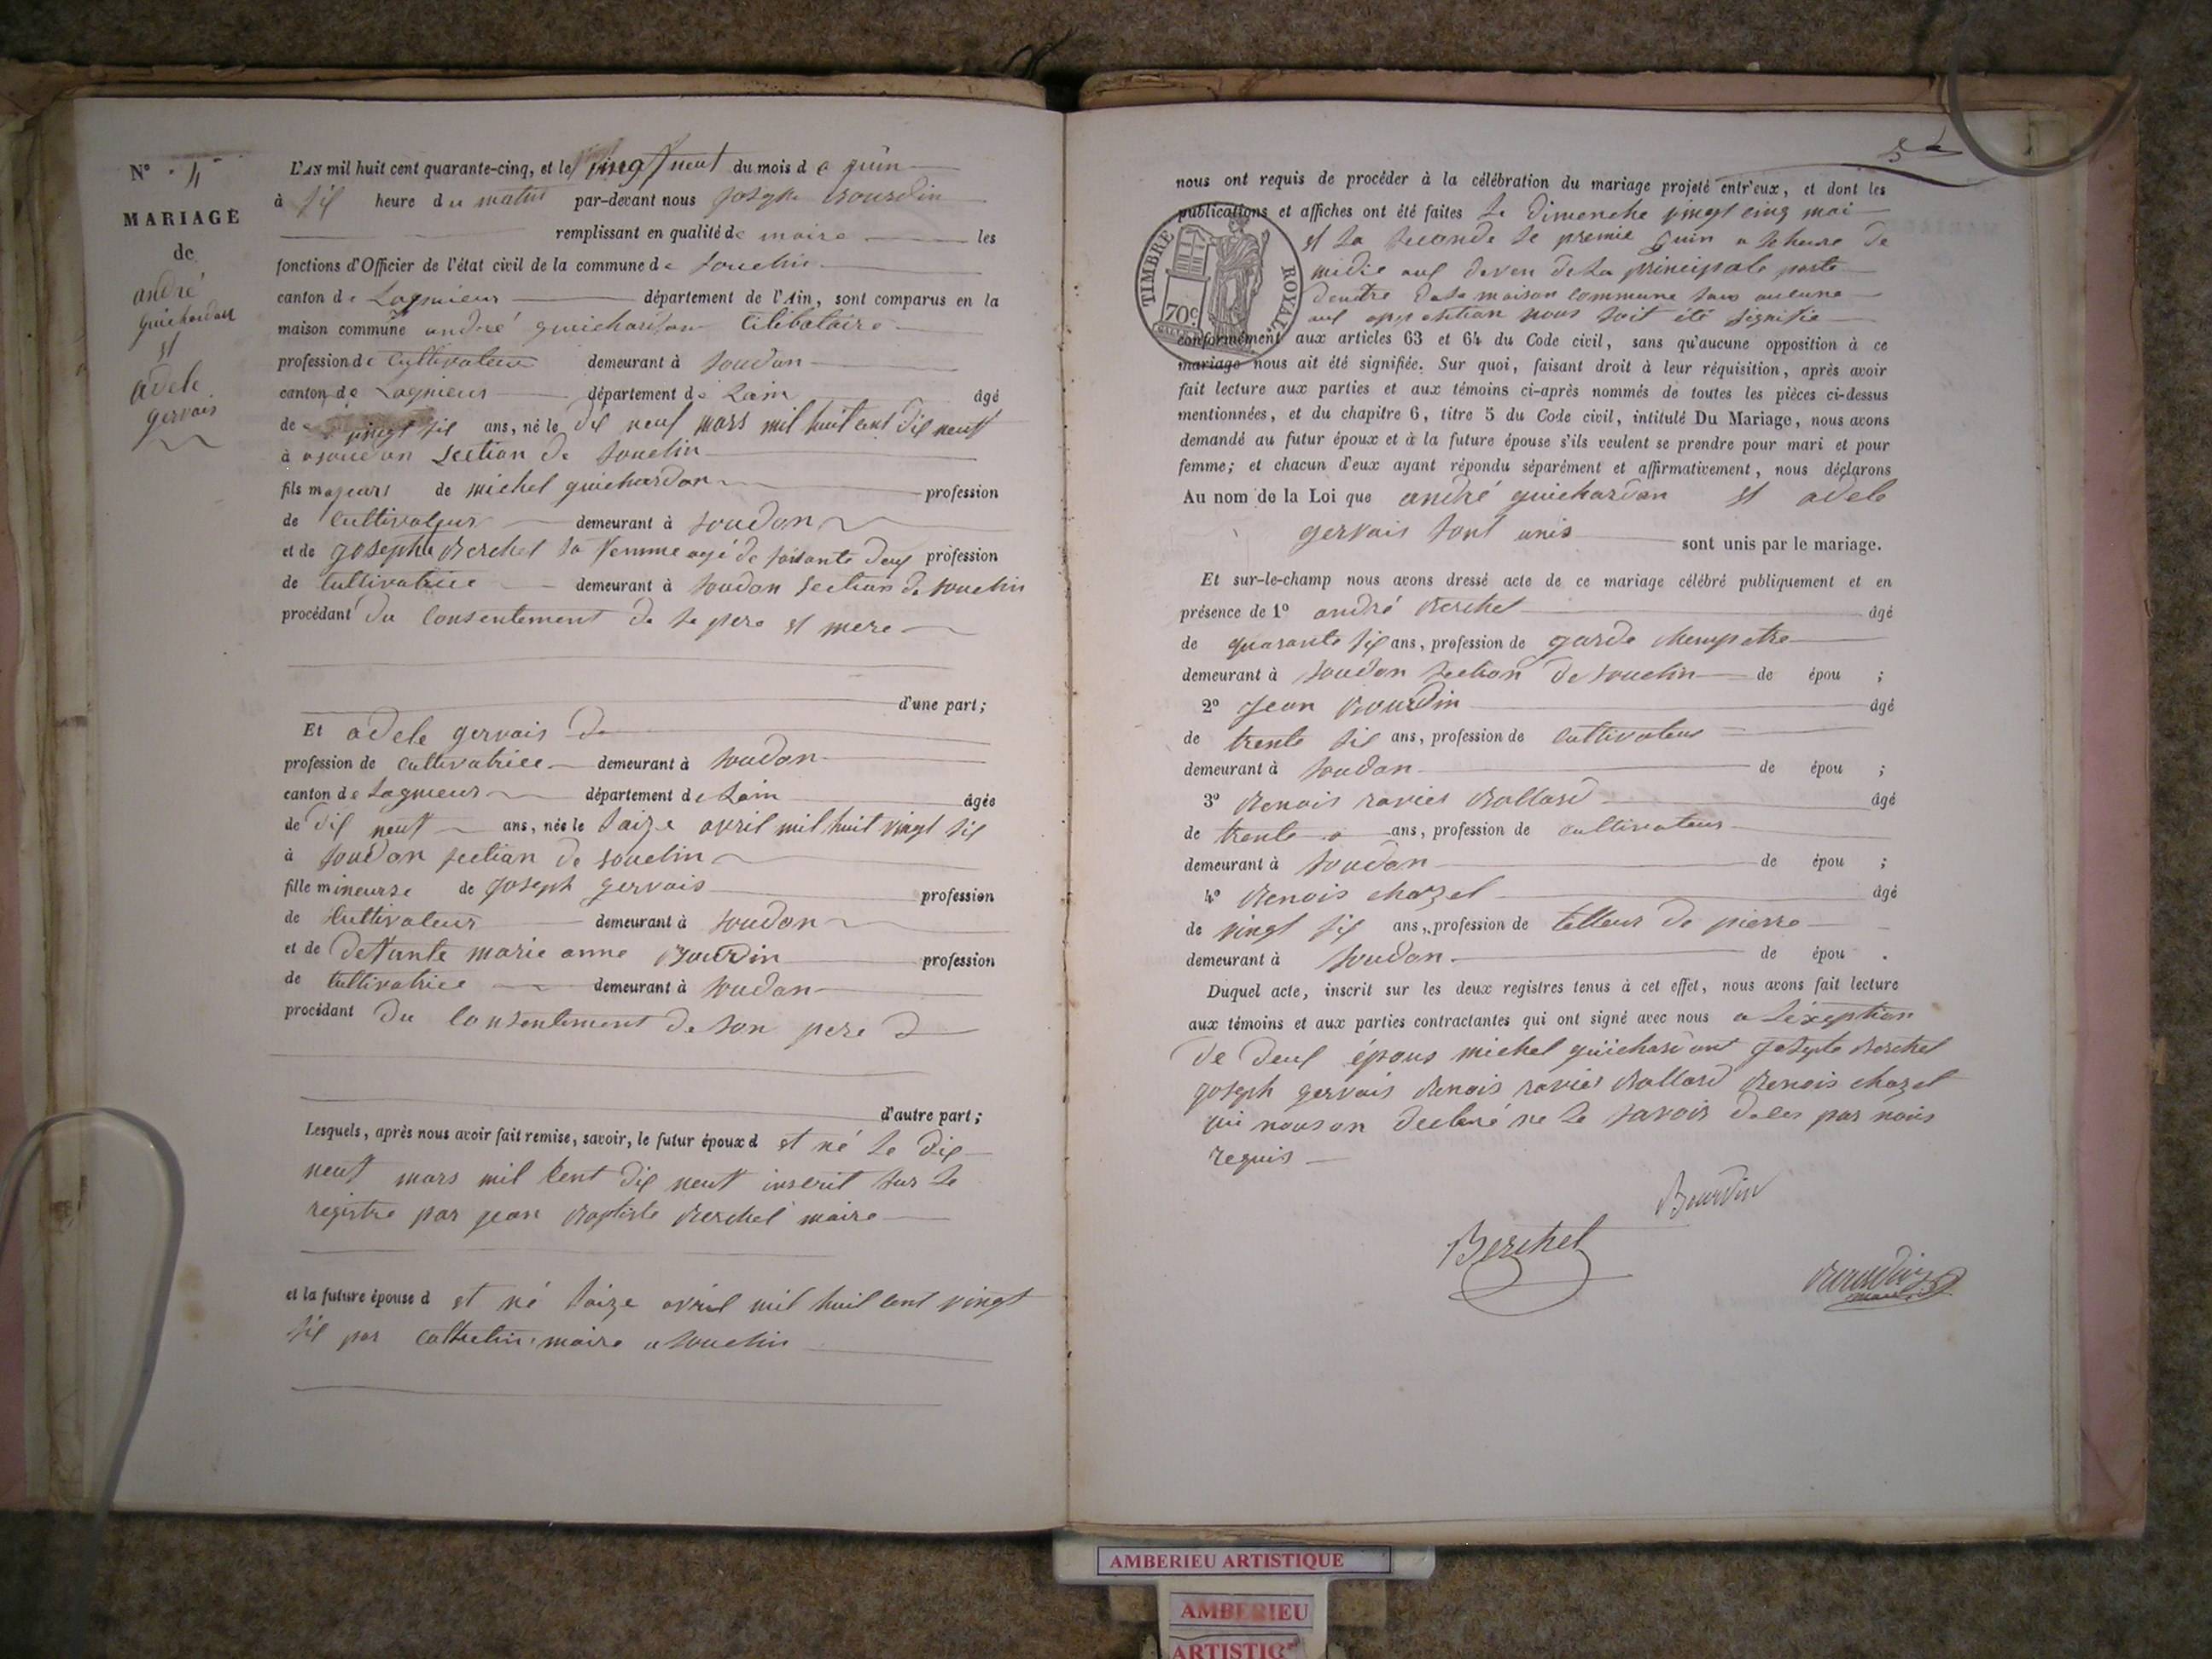 N° 4
MARIAGE
de
andré
guichardan
et
adele
gervais
L'AN mil huit cent quarante-cinq, et le vingt neuf du mois de juin
à six heure du matin par-devant nous joseph Bourdin
remplissant en qualité de maire les
fonctions d'Officier de l'état civil de la commune de souclin
canton de Lagnieux département de l'Ain, sont comparus en la
maison commune andré guichardan Celibataire
profession de Cultivateur demeurant à soudon
canton de Lagnieux département de Lain âgé
de vingt six ans, né le dix neuf mars mil huit cent dix neuf
à soudon section de souclin
fils majeurs de michel guichardon profession
de Cultivateur demeurant à soudon
et de josephte Berchel sa femme agé de soisante deux profession
de Cultivatrice demeurant à soudon section de souclin
procédant du Consentement de se pere et mere
d'une part;
Et adele gervais
profession de Cultivatrice demeurant à soudon
canton de Lagnieux département de Lain âgée
de dix neuf ans, née le saize avril mil huit vingt six
à soudon section de souclin
fille mineurse de joseph gervais profession
de Cultivateur demeurant à soudon
et de defunte marie anne Bourdin profession
de Cultivatrice demeurant à soudon
procédant du Consentement de son pere
d'autre part;
Lesquels, après nous avoir fait remise, savoir, le futur époux d et né le dix
neuf mars mil Cent dix neuf inscrit sur le
registre par jean Baptiste Berchel maire
et la future épouse d et né saize avril mil huit cent vingt
six par maire a souclin
nous ont requis de procéder à la célébration du mariage projeté entr'eux, et dont les
publications et affiches ont été faites le dimenche vingt cinq mai
et la seconde le premie juin a lheure de
midie aux deven de la principale porte
dentre de la maison Commune sans aucune
opposition nous soit été signifie
TIMBRE ROYAL
70 c
conformément aux articles 63 et 64 du Code civil, sans qu'aucune opposition à ce
mariage nous ait été signifiée. Sur quoi, faisant droit à leur réquisition, après avoir
fait lecture aux parties et aux témoins ci-après nommés de toutes les pièces ci-dessus
mentionnées, et du chapitre 6, titre 5 du Code civil, intitulé Du Mariage, nous avons
demandé au futur époux et à la future épouse s'ils veulent se prendre pour mari et pour
femme; et chacun d'eux ayant répondu séparément et affirmativement, nous déclarons
Au nom de la Loi que andré guichardan et adele
gervais sont unis sont unis par le mariage.
Et sur-le-champ nous avons dressé acte de ce mariage célébré publiquement et en
présence de 1° andré Berchet âgé
de quarante six ans, profession de garde chempetre
demeurant à soudon section de souclin de épou ;
2° Jean Bourdin âgé
de trente six ans, profession de Cultivateur
demeurant à soudon de épou ;
3° Benois ravier Ballard âgé
de trente ans, profession de cultivateur
demeurant à soudon de épou ;
4° Benois chazel âgé
de vingt six ans, profession de telleur de pierre
demeurant à soudon de épou .
Duquel acte, inscrit sur les deux registres tenus à cet effet, nous avons fait lecture
aux témoins et aux parties contractantes qui ont signé avec nous a lexeption
de deux épous michel guichardont josepte Berchel
joseph gervais Benois ravier Ballard Benois chazel
qui nous on declaré ne le savoir de les par nous
requis
Bourdin
Berchet
Bourdin
maire
AMBERIEU ARTISTIQUE
AMBERIEU